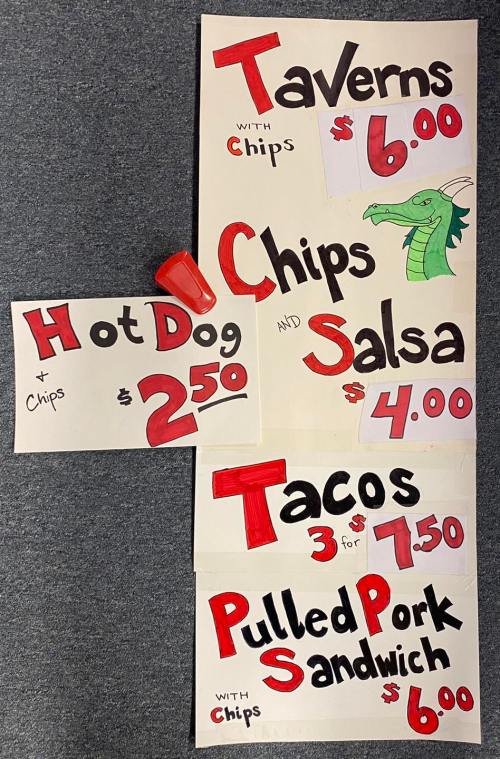 Taverns
WITH
Chips
$6.00
Chips
AND
Salsa
$4.00
Hot Dog
+
Chips
$2.50
Tacos
3 for $7.50
Pulled Pork
Sandwich
WITH
Chips
$6.00